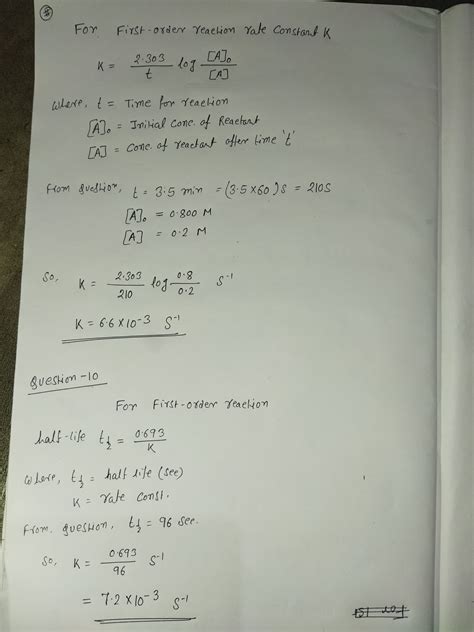 For First-order reaction rate Constant K
K = 2.303/t log [A]₀/[A]
where, t = Time for reaction
[A]₀ = Initial Conc. of Reactant
[A] = Conc. of reactant after time 't'
From question, t = 3.5 min = (3.5×60)s = 210s
[A]₀ = 0.800 M
[A] = 0.2 M
So, K = 2.303/210 log 0.8/0.2 s⁻¹
K = 6.6×10⁻³ s⁻¹
Question-10
For First-order reaction
half-life t½ = 0.693/K
where, t½ = half life (sec)
K = rate const.
From question, t½ = 96 sec.
So, K = 0.693/96 s⁻¹
= 7.2×10⁻³ s⁻¹